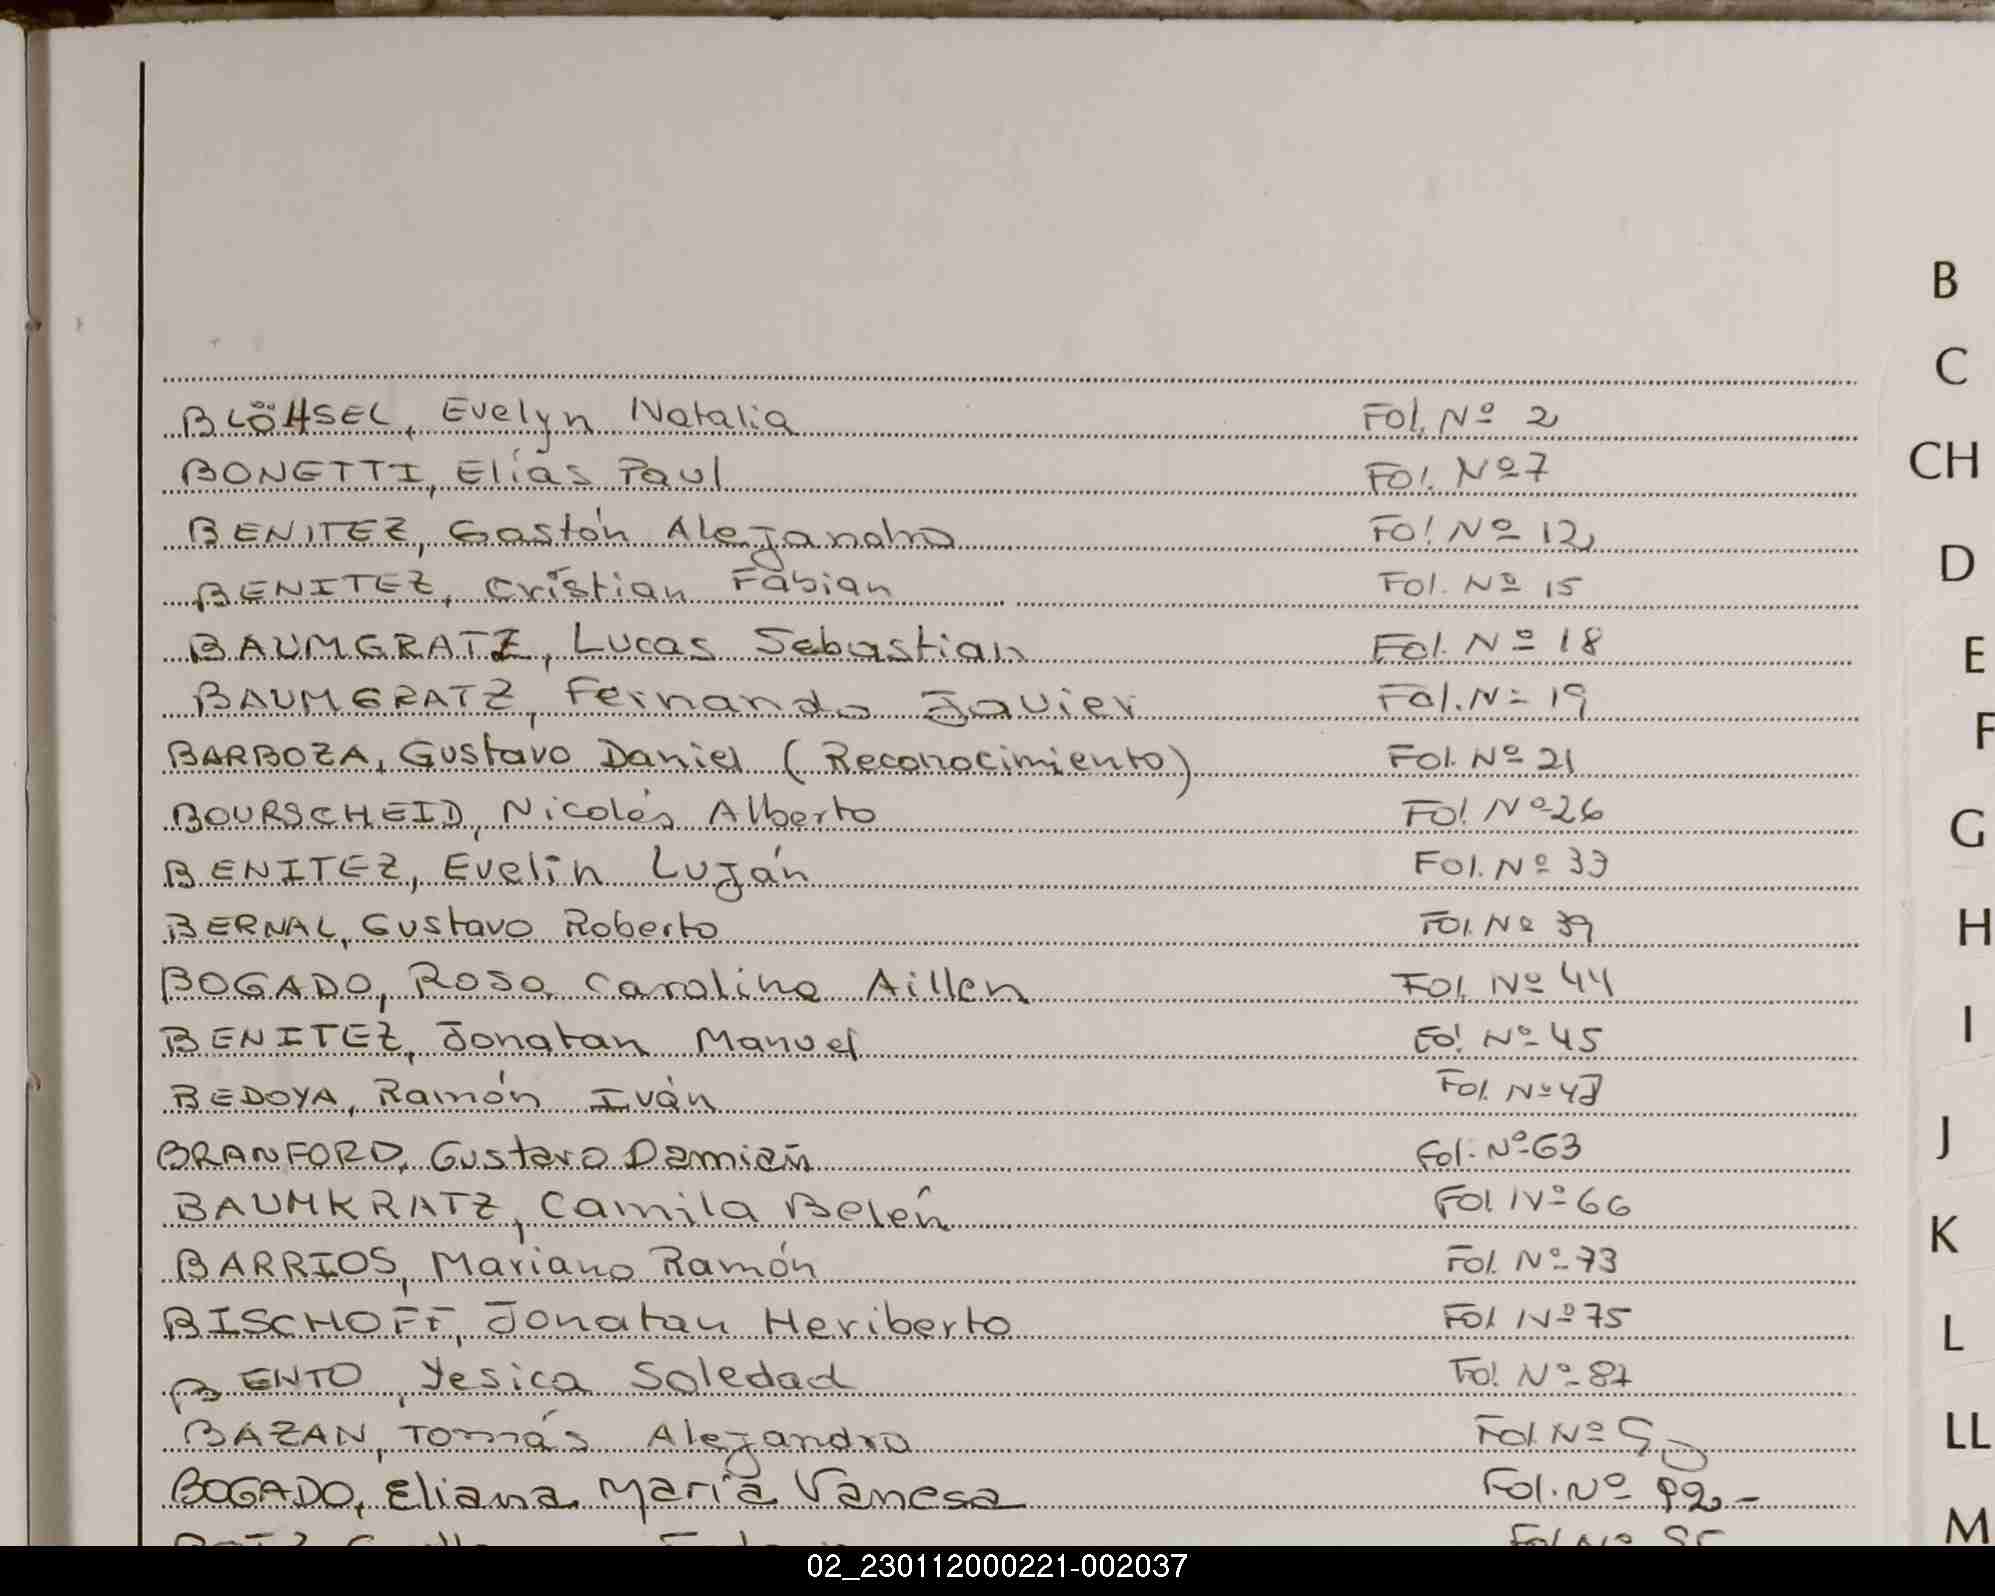 BLÖHSEL, Evelyn Natalia Fol. Nº 2
BONETTI, Elías Paul Fol. Nº 7
BENITEZ, Gastón Alejandro Fol Nº 12
BENITEZ, Cristian Fabian Fol. Nº 15
BAUMGRATZ, Lucas Sebastian Fol. Nº 18
BAUMGRATZ, Fernando Javier Fol. Nº 19
BARBOZA, Gustavo Daniel (Reconocimiento) Fol. Nº 21
BOURSCHEID, Nicolás Alberto Fol Nº 26
BENITEZ, Evelin Luján Fol. Nº 33
BERNAL, Gustavo Roberto Fol. Nº 39
BOGADO, Rosa Carolina Aillen Fol. Nº 44
BENITEZ, Jonatan Manuel Fol Nº 45
BEDOYA, Ramón Iván Fol. Nº
BRANFORD, Gustavo Damián Fol. Nº 63
BAUMKRATZ, Camila Belén Fol Nº 66
BARRIOS, Mariano Ramón Fol. Nº 73
BISCHOFF, Jonatan Heriberto Fol Nº 75
BENTO, Yesica Soledad Fol Nº 87
BAZAN, Tomás Alejandro Fol Nº
BOGADO, Eliana María Vanesa Fol. Nº 92-
B
C
CH
D
E
F
G
H
I
J
K
L
LL
M
02_230112000221-002037